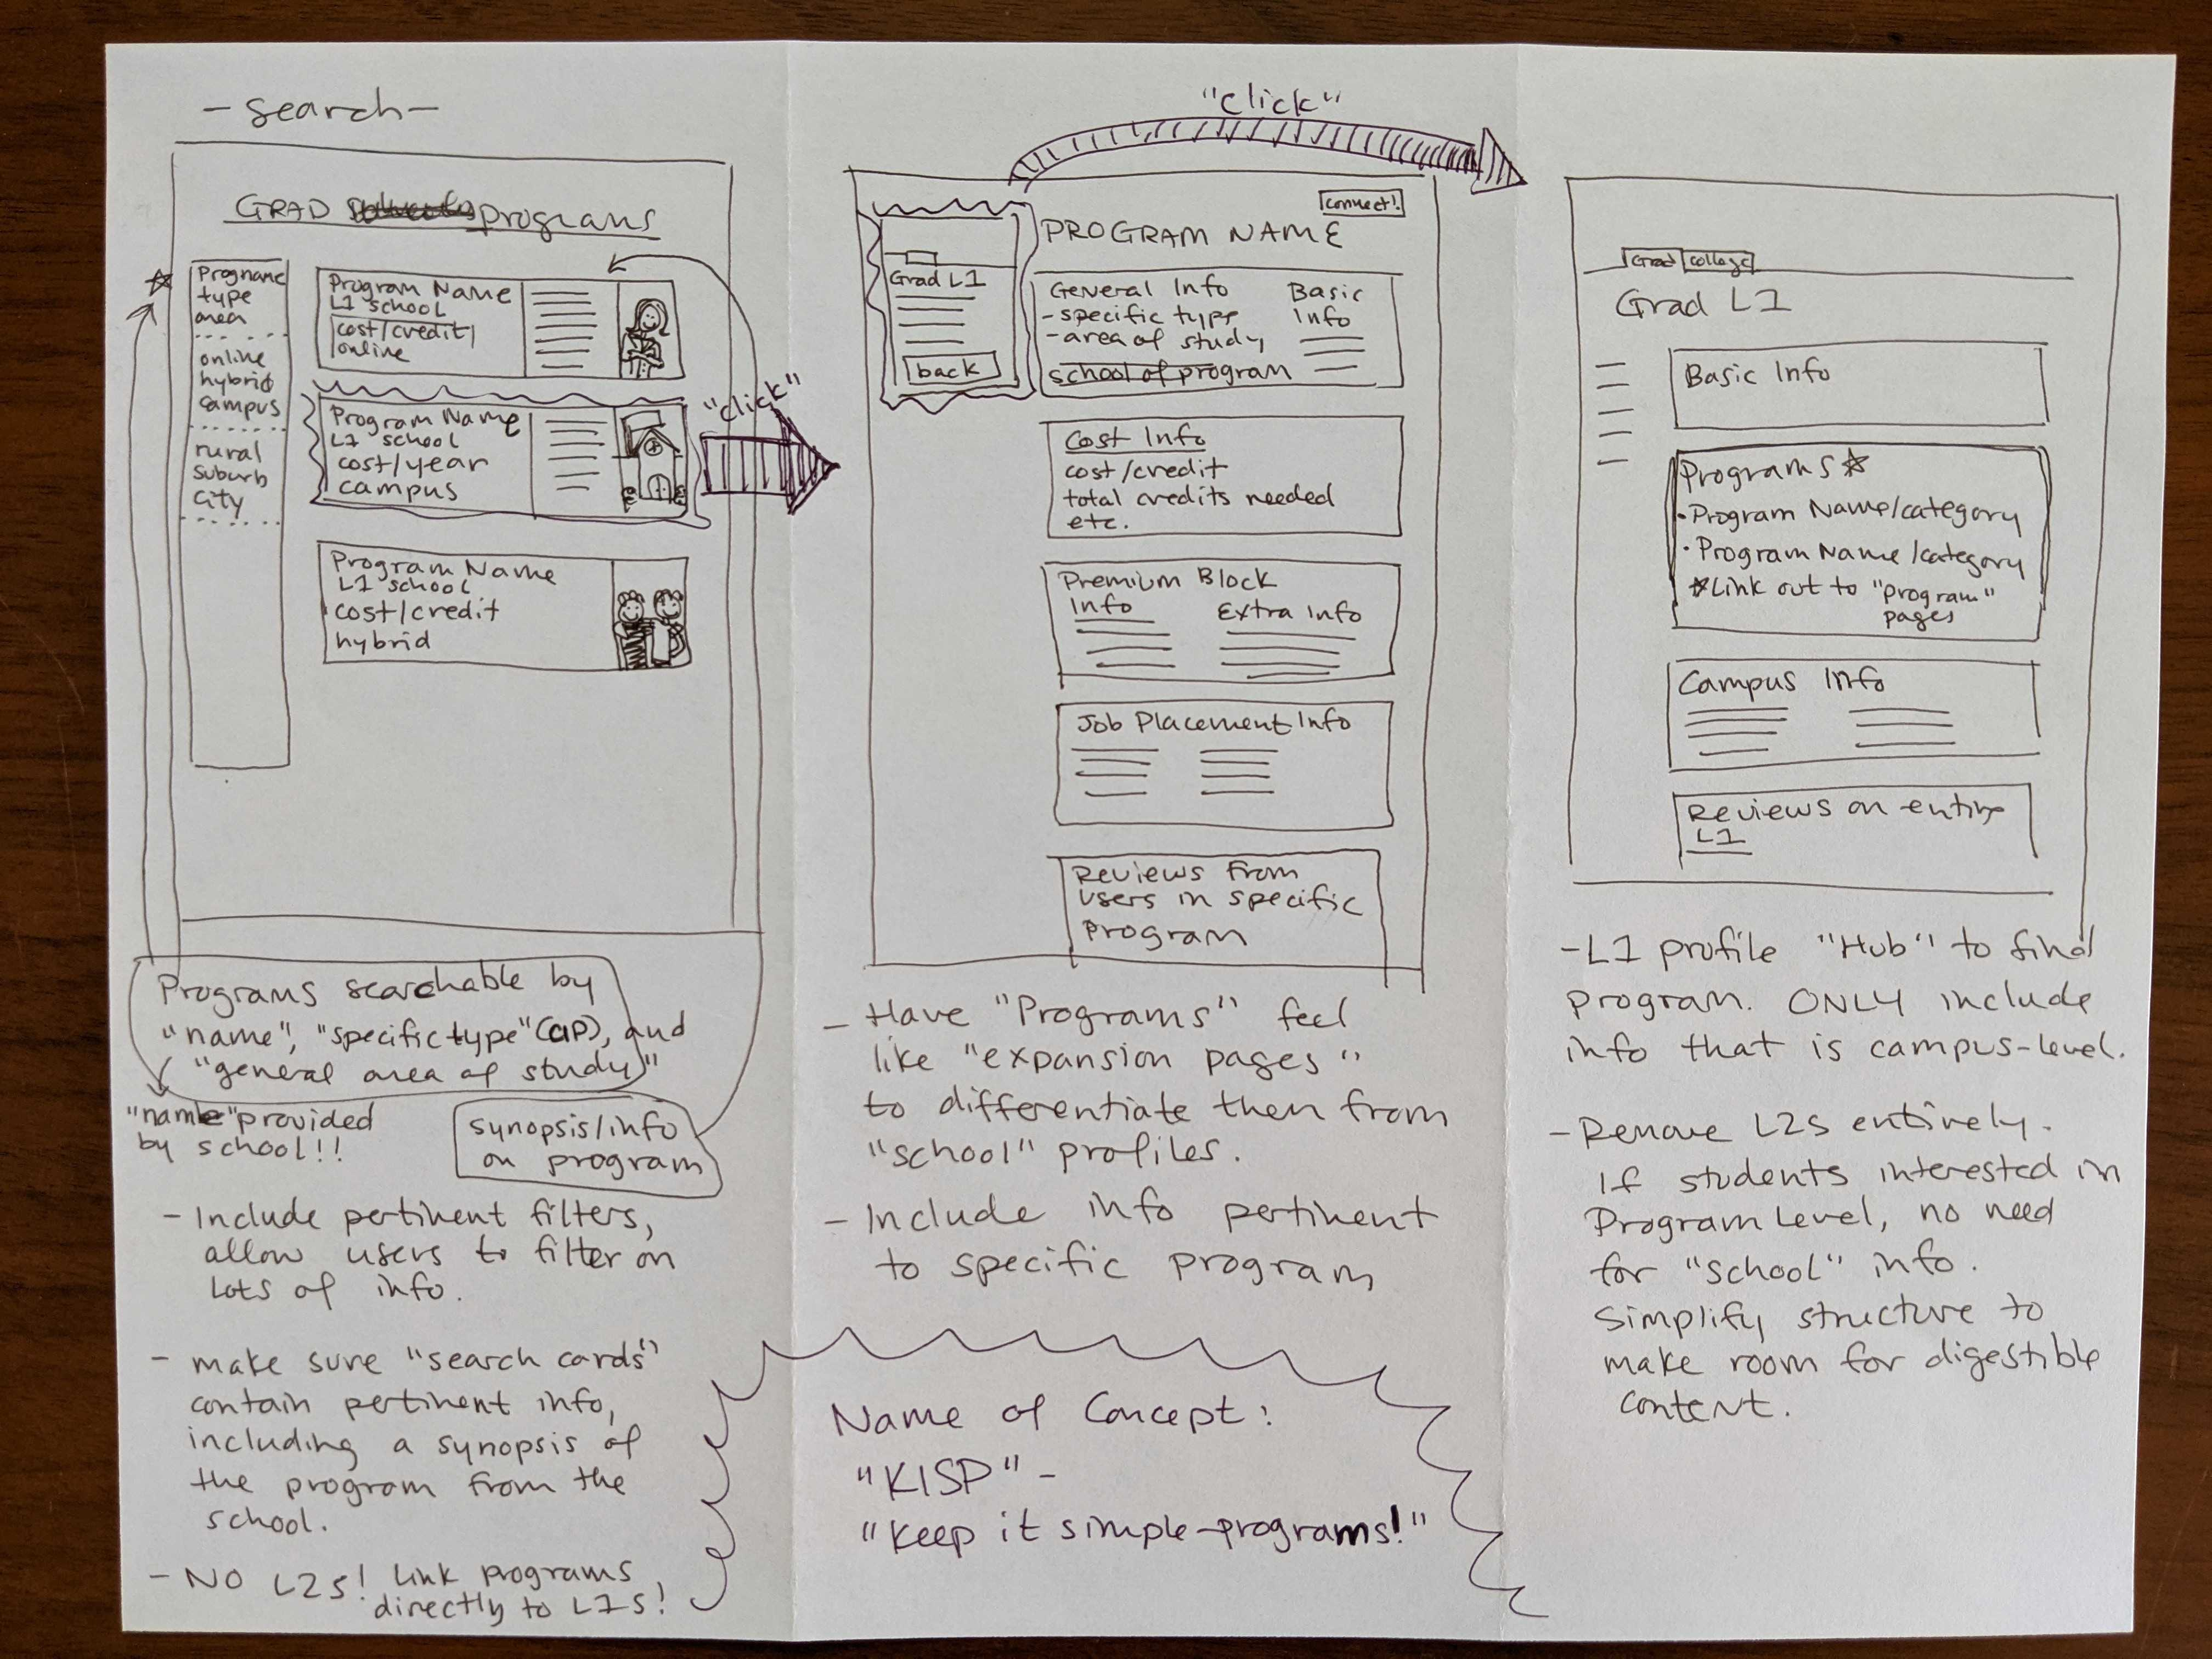 - search -
GRAD programs
Progname
type
area
online
hybrid
campus
rural
suburb
city
Program Name
L1 school
cost/credit/
online
Program Name
L1 school
cost/year
campus
Program Name
L1 school
cost/credit
hybrid
"click"
Programs searchable by
"name", "specific type" (CIP), and
"general area of study"
"name" provided
by school!!
synopsis/info
on program
- Include pertinent filters,
allow users to filter on
lots of info.
- make sure "search cards"
contain pertinent info,
including a synopsis of
the program from the
school.
- NO L2s! Link programs
directly to L1s!
"click"
Grad L1
back
connect!
PROGRAM NAME
General Info
- specific type
- area of study
school of program
Basic
Info
Cost Info
cost/credit
total credits needed
etc.
Premium Block
Info
Extra Info
Job Placement Info
Reviews from
users in specific
program
- Have "Programs" feel
like "expansion pages"
to differentiate then from
"school" profiles.
- Include info pertinent
to specific program
Name of Concept:
"KISP" -
"Keep it simple-programs!"
Grad
college
Grad L1
Basic Info
Programs ☆
· Program Name/category
· Program Name/category
☆Link out to "program"
pages
Campus Info
Reviews on entire
L1
- L1 profile "Hub" to find
program. ONLY include
info that is campus-level.
- Remove L2s entirely.
If students interested in
Program Level, no need
for "school" info.
Simplify structure to
make room for digestible
content.